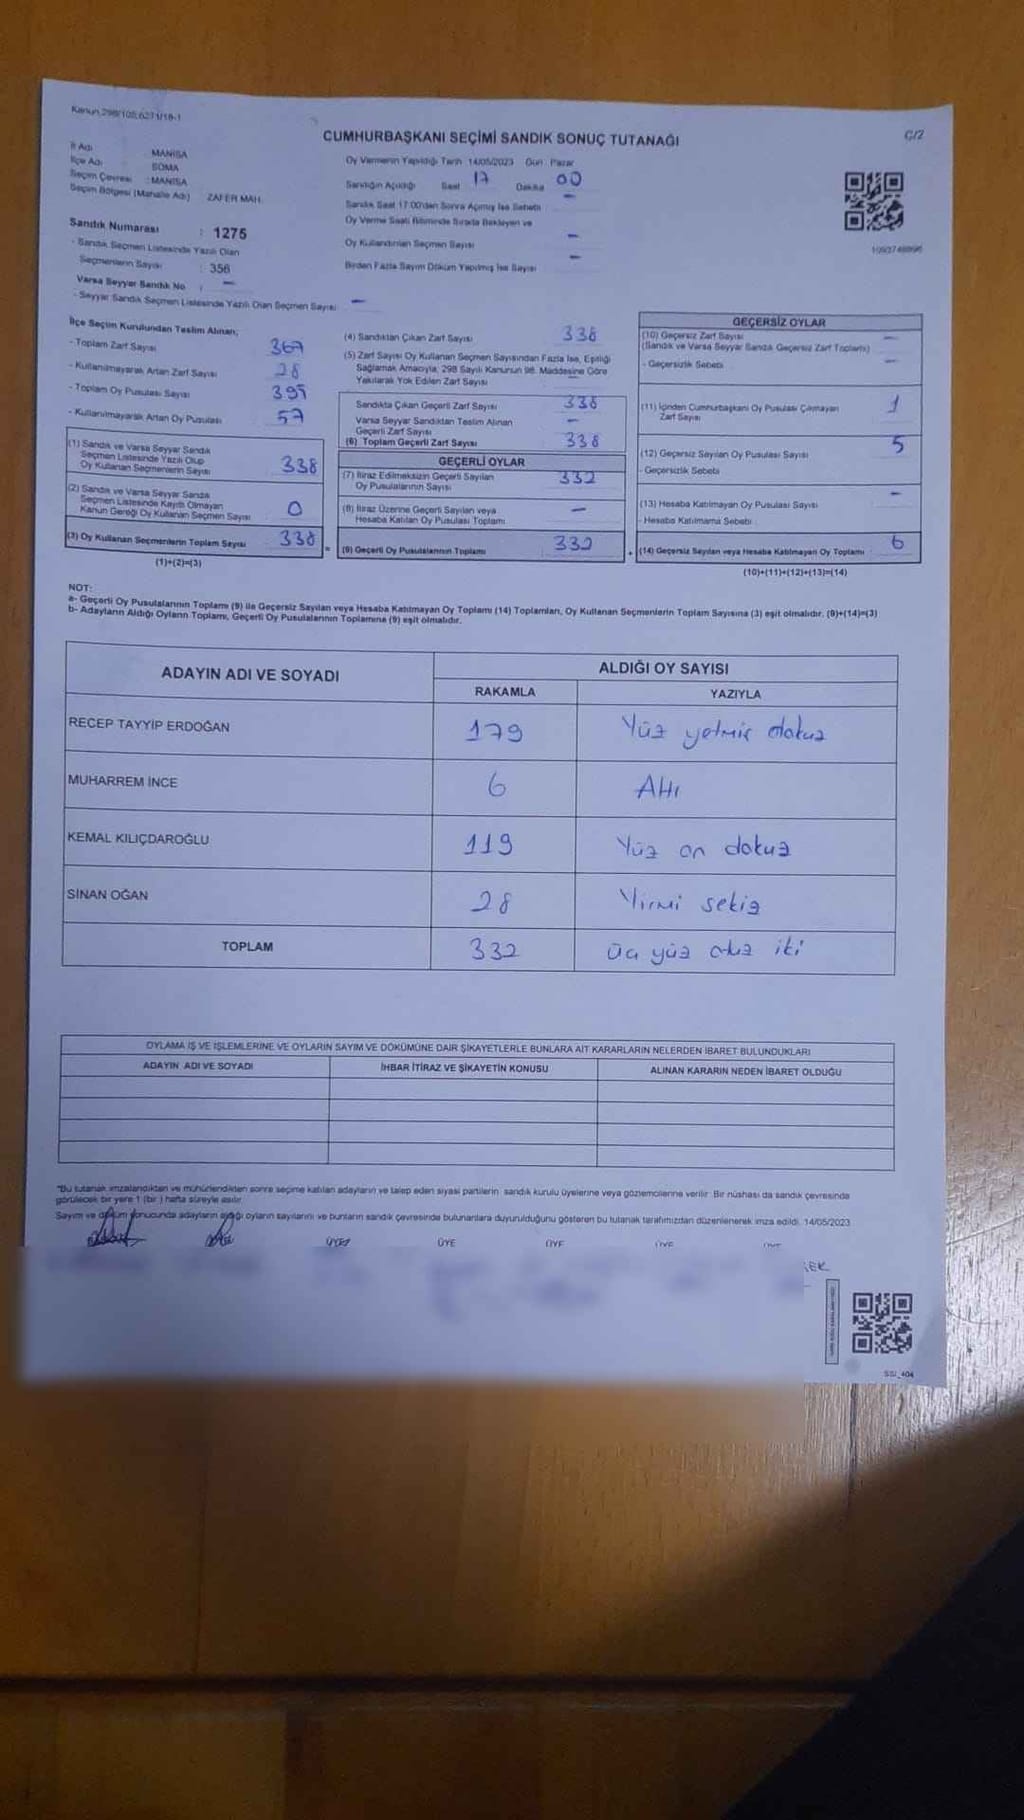 Kanun, 298/105, 6271/18-1
CUMHURBAŞKANI SEÇİMİ SANDIK SONUÇ TUTANAĞI
C/2
İl Adı : MANİSA
İlçe Adı : SOMA
Seçim Çevresi : MANİSA
Seçim Bölgesi (Mahalle Adı) ZAFER MAH.
Sandık Numarası : 1275
- Sandık Seçmen Listesinde Yazılı Olan
Seçmenlerin Sayısı : 356
Varsa Seyyar Sandık No : -
- Seyyar Sandık Seçmen Listesinde Yazılı Olan Seçmen Sayısı: -
Oy Vermenin Yapıldığı Tarih 14/05/2023 Gün : Pazar
Sandığın Açıldığı Saat 17 Dakika 00
Sandık Saat 17:00'den Sonra Açılmış İse Sebebi -
Oy Verme Saati Bitiminde Sırada Bekleyen ve
Oy Kullandırılan Seçmen Sayısı -
Birden Fazla Sayım Döküm Yapılmış İse Sayısı -
İlçe Seçim Kurulundan Teslim Alınan;
- Toplam Zarf Sayısı 367
- Kullanılmayarak Artan Zarf Sayısı 28
- Toplam Oy Pusulası Sayısı 395
- Kullanılmayarak Artan Oy Pusulası 57
(1) Sandık ve Varsa Seyyar Sandık
Seçmen Listesinde Yazılı Olup
Oy Kullanan Seçmenlerin Sayısı 338
(2) Sandık ve Varsa Seyyar Sandık
Seçmen Listesinde Kayıtlı Olmayan
Kanun Gereği Oy Kullanan Seçmen Sayısı 0
(3) Oy Kullanan Seçmenlerin Toplam Sayısı 338
(1)+(2)=(3)
(4) Sandıktan Çıkan Zarf Sayısı 338
(5) Zarf Sayısı Oy Kullanan Seçmen Sayısından Fazla İse, Eşitliği
Sağlamak Amacıyla, 298 Sayılı Kanunun 98. Maddesine Göre
Yakılarak Yok Edilen Zarf Sayısı -
Sandıkta Çıkan Geçerli Zarf Sayısı 338
Varsa Seyyar Sandıktan Teslim Alınan
Geçerli Zarf Sayısı -
(6) Toplam Geçerli Zarf Sayısı 338
GEÇERLİ OYLAR
(7) İtiraz Edilmeksizin Geçerli Sayılan
Oy Pusulalarının Sayısı 332
(8) İtiraz Üzerine Geçerli Sayılan veya
Hesaba Katılan Oy Pusulası Toplamı -
= (9) Geçerli Oy Pusulalarının Toplamı 332
GEÇERSİZ OYLAR
(10) Geçersiz Zarf Sayısı
(Sandık ve Varsa Seyyar Sandık Geçersiz Zarf Toplamı) -
- Geçersizlik Sebebi -
(11) İçinden Cumhurbaşkanı Oy Pusulası Çıkmayan
Zarf Sayısı 1
(12) Geçersiz Sayılan Oy Pusulası Sayısı 5
- Geçersizlik Sebebi
(13) Hesaba Katılmayan Oy Pusulası Sayısı -
- Hesaba Katılmama Sebebi
+ (14) Geçersiz Sayılan veya Hesaba Katılmayan Oy Toplamı 6
(10)+(11)+(12)+(13)=(14)
NOT:
a- Geçerli Oy Pusulalarının Toplamı (9) ile Geçersiz Sayılan veya Hesaba Katılmayan Oy Toplamı (14) Toplamları, Oy Kullanan Seçmenlerin Toplam Sayısına (3) eşit olmalıdır. (9)+(14)=(3)
b- Adayların Aldığı Oyların Toplamı, Geçerli Oy Pusulalarının Toplamına (9) eşit olmalıdır.
ADAYIN ADI VE SOYADI ALDIĞI OY SAYISI
RAKAMLA YAZIYLA
RECEP TAYYİP ERDOĞAN 179 Yüz yetmiş dokuz
MUHARREM İNCE 6 Altı
KEMAL KILIÇDAROĞLU 119 Yüz on dokuz
SİNAN OĞAN 28 Yirmi sekiz
TOPLAM 332 üç yüz otuz iki
OYLAMA İŞ VE İŞLEMLERİNE VE OYLARIN SAYIM VE DÖKÜMÜNE DAİR ŞİKAYETLERLE BUNLARA AİT KARARLARIN NELERDEN İBARET BULUNDUKLARI
ADAYIN ADI VE SOYADI İHBAR İTİRAZ VE ŞİKAYETİN KONUSU ALINAN KARARIN NEDEN İBARET OLDUĞU
"Bu tutanak imzalandıktan ve mühürlendikten sonra seçime katılan adayların ve talep eden siyasi partilerin sandık kurulu üyelerine veya gözlemcilerine verilir. Bir nüshası da sandık çevresinde
görülecek bir yere 1 (bir) hafta süreyle asılır.
Sayım ve döküm sonucunda adayların aldığı oyların sayılarını ve bunların sandık çevresinde bulunanlara duyurulduğunu gösteren bu tutanak tarafımızdan düzenlenerek imza edildi. 14/05/2023
ÜYE ÜYE ÜYE ÜYE
SSI_404